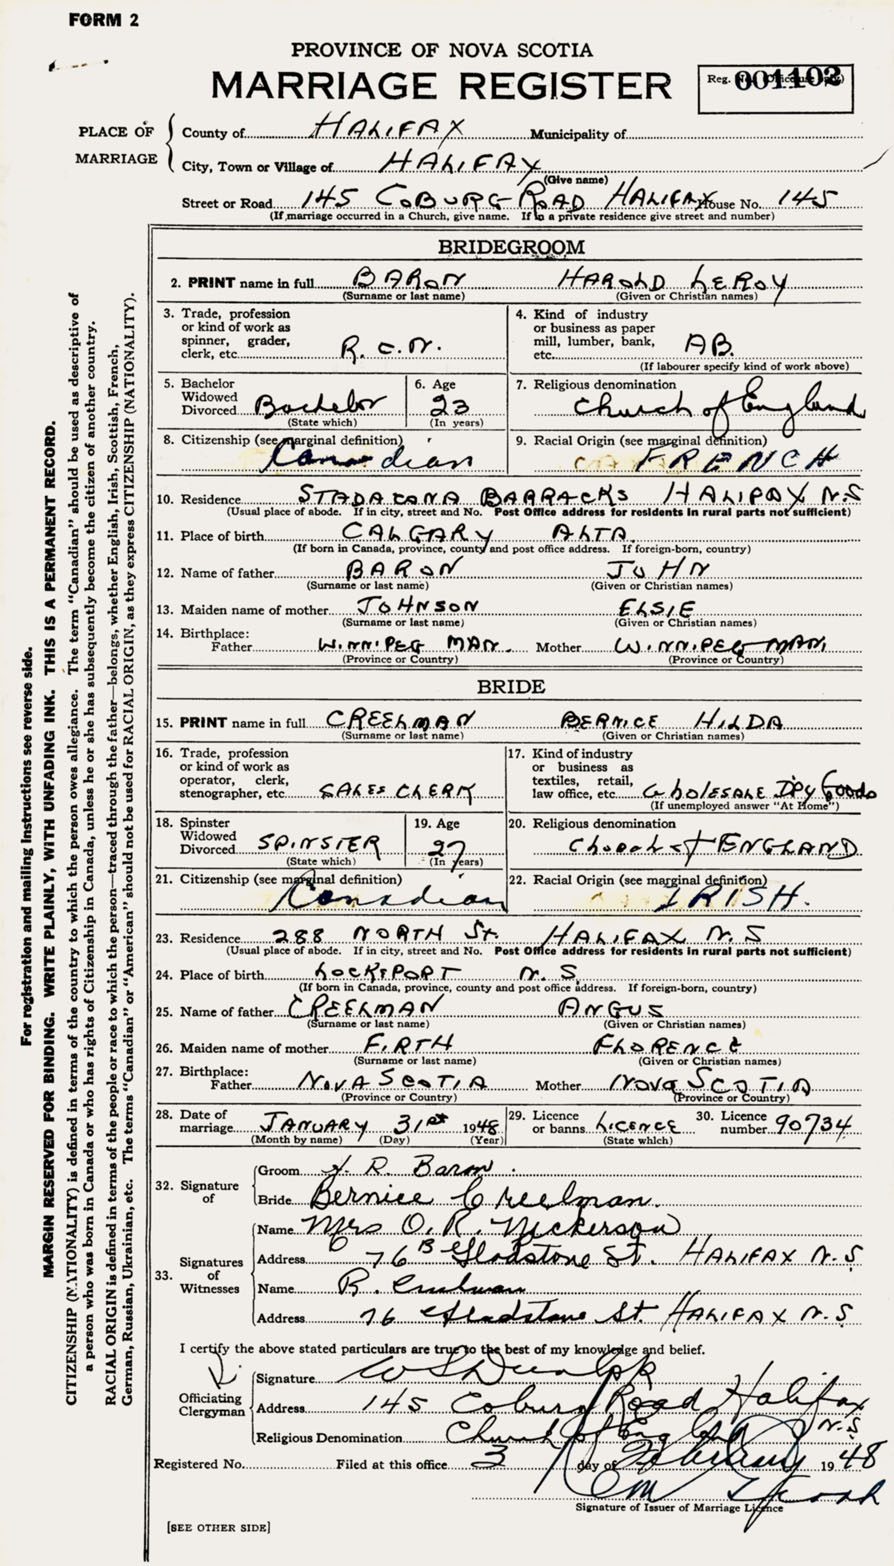 FORM 2
PROVINCE OF NOVA SCOTIA
MARRIAGE REGISTER
Reg. No. (Office use only) 001102
PLACE OF MARRIAGE
County of HALIFAX Municipality of
City, Town or Village of HALIFAX
(Give name)
Street or Road 145 COBURG ROAD HALIFAX House No. 145
(If marriage occurred in a Church, give name. If in a private residence give street and number)
BRIDEGROOM
2. PRINT name in full BARON HAROLD LEROY
(Surname or last name) (Given or Christian names)
3. Trade, profession or kind of work as spinner, grader, clerk, etc. R.C.N.
4. Kind of industry or business as paper mill, lumber, bank, etc. AB.
(If labourer specify kind of work above)
5. Bachelor Widowed Divorced Bachelor
(State which)
6. Age 23
(In years)
7. Religious denomination Church of England
8. Citizenship (see marginal definition) Canadian
9. Racial Origin (see marginal definition) FRENCH
10. Residence STADACONA BARRACKS HALIFAX N.S
(Usual place of abode. If in city, street and No. Post Office address for residents in rural parts not sufficient)
11. Place of birth CALGARY ALTA.
(If born in Canada, province, county and post office address. If foreign-born, country)
12. Name of father BARON JOHN
(Surname or last name) (Given or Christian names)
13. Maiden name of mother JOHNSON ELSIE
(Surname or last name) (Given or Christian names)
14. Birthplace: Father WINNIPEG MAN. Mother WINNIPEG MAN.
(Province or Country) (Province or Country)
BRIDE
15. PRINT name in full CREELMAN BERNICE HILDA
(Surname or last name) (Given or Christian names)
16. Trade, profession or kind of work as operator, clerk, stenographer, etc. SALES CLERK
17. Kind of industry or business as textiles, retail, law office, etc. Wholesale Dry Goods
(If unemployed answer "At Home")
18. Spinster Widowed Divorced SPINSTER
(State which)
19. Age 27
(In years)
20. Religious denomination Church of ENGLAND
21. Citizenship (see marginal definition) Canadian
22. Racial Origin (see marginal definition) IRISH.
23. Residence 288 NORTH St. HALIFAX N.S
(Usual place of abode. If in city, street and No. Post Office address for residents in rural parts not sufficient)
24. Place of birth LOCKEPORT N.S.
(If born in Canada, province, county and post office address. If foreign-born, country)
25. Name of father CREELMAN ANGUS
(Surname or last name) (Given or Christian names)
26. Maiden name of mother FIRTH FLORENCE
(Surname or last name) (Given or Christian names)
27. Birthplace: Father NOVA SCOTIA Mother NOVA SCOTIA
(Province or Country) (Province or Country)
28. Date of marriage JANUARY 31st 1948
(Month by name) (Day) (Year)
29. Licence or banns LICENCE
(State which)
30. Licence number 90734
32. Signature of
Groom H. R. Baron.
Bride Bernice Creelman.
33. Signatures of Witnesses
Name Mrs O. R. Nickerson
Address 76B Gladstone St. HALIFAX N.S
Name R. Creelman
Address 76 Gladstone St. HALIFAX N.S
I certify the above stated particulars are true to the best of my knowledge and belief.
Officiating Clergyman
Signature W S Dunlop
Address 145 Coburg Road Halifax N.S
Religious Denomination Church of England
Registered No. Filed at this office 3 day of February 1948
Signature of Issuer of Marriage Licence
[SEE OTHER SIDE]
For registration and mailing instructions see reverse side.
MARGIN RESERVED FOR BINDING. WRITE PLAINLY, WITH UNFADING INK. THIS IS A PERMANENT RECORD.
CITIZENSHIP (NATIONALITY) is defined in terms of the country to which the person owes allegiance. The term "Canadian" should be used as descriptive of
a person who was born in Canada or who has rights of Citizenship in Canada, unless he or she has subsequently become the citizen of another country.
RACIAL ORIGIN is defined in terms of the people or race to which the person—traced through the father—belongs, whether English, Irish, Scottish, French,
German, Russian, Ukrainian, etc. The terms "Canadian" or "American" should not be used for RACIAL ORIGIN, as they express CITIZENSHIP (NATIONALITY).